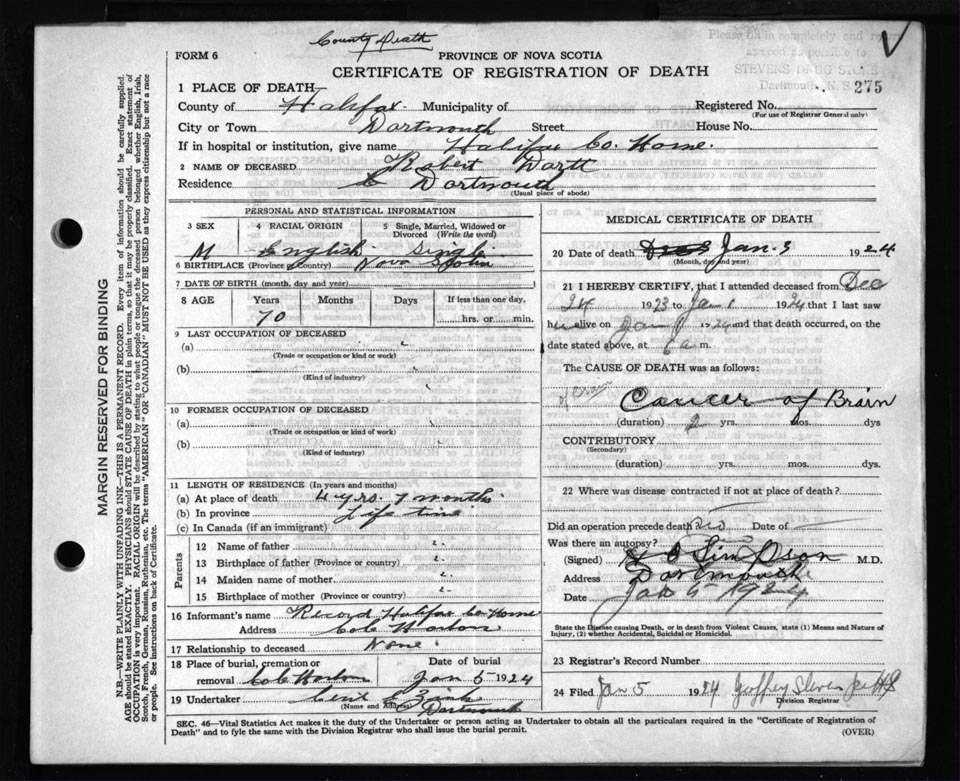 County Death
FORM 6
PROVINCE OF NOVA SCOTIA
CERTIFICATE OF REGISTRATION OF DEATH
Please fill in completely and return
as soon as possible to
STEVENS DRUG STORE
Dartmouth, N. S.
275
1 PLACE OF DEATH
County of Halifax Municipality of
Registered No.
(For use of Registrar General only)
City or Town Dartmouth Street House No.
If in hospital or institution, give name Halifax Co. Home.
2 NAME OF DECEASED Robert Dartt
Residence Dartmouth
(Usual place of abode)
PERSONAL AND STATISTICAL INFORMATION
3 SEX
4 RACIAL ORIGIN
5 Single, Married, Widowed or Divorced (Write the word)
M English Single
6 BIRTHPLACE (Province or Country) Nova Scotia
7 DATE OF BIRTH (month, day and year)
8 AGE Years Months Days If less than one day,
70
hrs. or min.
9 LAST OCCUPATION OF DECEASED
(a)
(Trade or occupation or kind of work)
(b)
(Kind of industry)
10 FORMER OCCUPATION OF DECEASED
(a)
(Trade or occupation or kind of work)
(b)
(Kind of industry)
11 LENGTH OF RESIDENCE (In years and months)
(a) At place of death 4 yrs. 7 months
(b) In province Life time
(c) In Canada (if an immigrant)
Parents
12 Name of father
13 Birthplace of father (Province or country)
14 Maiden name of mother
15 Birthplace of mother (Province or country)
16 Informant's name Record Halifax Co Home
Address Cole Harbor
17 Relationship to deceased None
18 Place of burial, cremation or removal Cole Harbor
Date of burial Jan 5 1924
19 Undertaker Zink
(Name and Address) Dartmouth
MEDICAL CERTIFICATE OF DEATH
20 Date of death Jan. 3 1924
(Month, day and year)
21 I HEREBY CERTIFY, that I attended deceased from Dec
24 1923 to Jan 1 1924 that I last saw
him alive on Jan 1 1924 and that death occurred, on the
date stated above, at 6 a m.
The CAUSE OF DEATH was as follows:
of Brain
Cancer of Brain
(duration) 2 yrs. mos. dys
CONTRIBUTORY
(Secondary)
(duration) yrs. mos. dys.
22 Where was disease contracted if not at place of death?
Did an operation precede death? No Date of
Was there an autopsy?
(Signed) Simpson M.D.
Address Dartmouth
Date Jan 1924
State the Disease causing Death, or in death from Violent Causes, state (1) Means and Nature of
Injury, (2) whether Accidental, Suicidal or Homicidal.
23 Registrar's Record Number
24 Filed Jan 5 1924 Geoffrey Stevens
Division Registrar
SEC. 46—Vital Statistics Act makes it the duty of the Undertaker or person acting as Undertaker to obtain all the particulars required in the "Certificate of Registration of
Death" and to fyle the same with the Division Registrar who shall issue the burial permit.
(OVER)
MARGIN RESERVED FOR BINDING
N.B.—WRITE PLAINLY WITH UNFADING INK—THIS IS A PERMANENT RECORD. Every item of information should be carefully supplied.
AGE should be stated EXACTLY. PHYSICIANS should STATE CAUSE OF DEATH in plain terms, so that it may be properly classified. Exact statement of
OCCUPATION is very important. RACIAL ORIGIN will be described by stating to what people or tongue the deceased person belonged whether English, Irish,
Scotch, French, German, Russian, Ruthenian, etc. The terms "AMERICAN" OR "CANADIAN" MUST NOT BE USED as they express citizenship but not a race
or people. See instructions on back of Certificate.